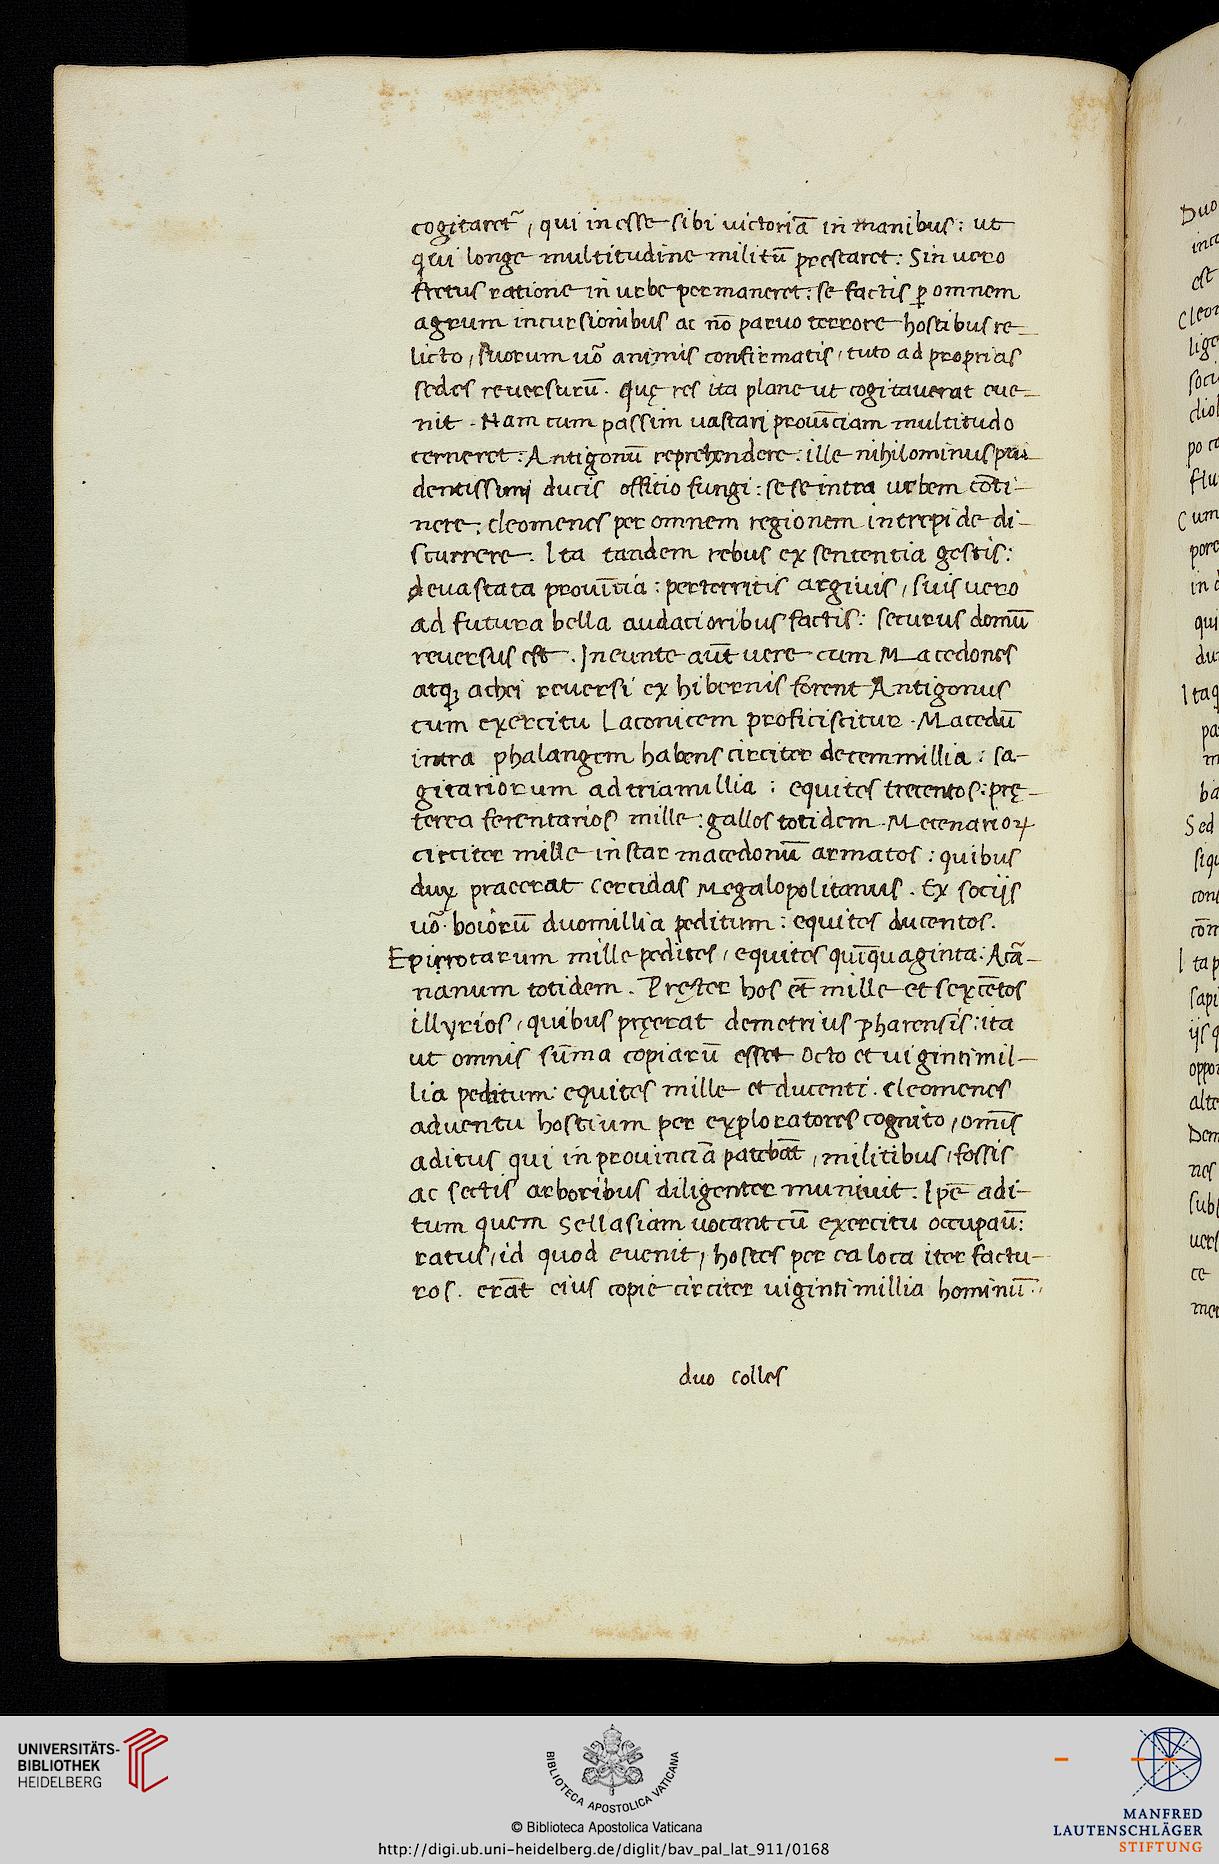 cogitaret᷒, qui in esse sibi victoriā in manibus: ut
qui longe multitudine militū prestaret: Sin uero
fretus ratione in urbe permaneret: se factis ꝑ omnem
agrum incursionibus ac nō paruo terrore hostibus re-
licto, suorum uō animis confirmatis, tuto ad proprias
sedes reversurū. Quę res ita plane ut cogitaverat eue-
nit. Nam cum passim vastari prouīciam multitudo
cerneret: Antigonū reprehendere: ille nihilominus pru
dentissimi ducis offitio fungi: se se intra urbem cōti-
nere: cleomenes per omnem regionem intrepide di-
scurrere. Ita tandem rebus ex sententia gestis:
deuastata prouītia: perterritis argivis, suis uero
ad futura bella audacioribus factis: securus domū
reuersus est. Ineunte aūt uere cum Macedones
atq; achei reuersi ex hibernis forent Antigonus
cum exercitu Laconicem proficiscitur. Macedū
intra phalangem habens circiter decem millia: sa-
gitariorum ad tria millia: equites trecentos: prę-
terea ferentarios mille: gallos totidem. Mecenarioꝝ
circiter mille instar macedonū armatos: quibus
dux praeerat Cercidas Megalopolitanus. Ex sociis
uō. boiorū duo millia peditum: equites ducentos.
Epirotarum mille pedites, equites quīquaginta: Acā-
nanum totidem. Pręter hos et̄ mille et sexcētos
illyrios, quibus pręerat demetrius pharensis: ita
ut omnis sūma copiarū esset octo et viginti mil-
lia peditum: equites mille et ducenti. Cleomenes
aduentu hostium per exploratores cognito, omīs
aditus qui in prouinciā patebāt, militibus, fossis
ac sectis arboribus diligenter munivit. Ipē adi-
tum quem Sellasiam uocant cū exercitu occupaū:
ratus, id quod evenit, hostes per ea loca iter factu-
ros. erāt eius copie circiter uiginti millia hominū.

duo colles

Duo
est
Cleom
lige
socu
po
flu
Cum
pore
in
qui
du
Itaq
pa
m
ba
Sed
siqu
con
cōm
Itap
sapi
iis q
oppor
alte
Dem
nes
sub
uers
ce
mer

UNIVERSITÄTS-
BIBLIOTHEK
HEIDELBERG
BIBLIOTECA APOSTOLICA VATICANA
© Biblioteca Apostolica Vaticana
http://digi.ub.uni-heidelberg.de/diglit/bav_pal_lat_911/0168
MANFRED
LAUTENSCHLÄGER
STIFTUNG